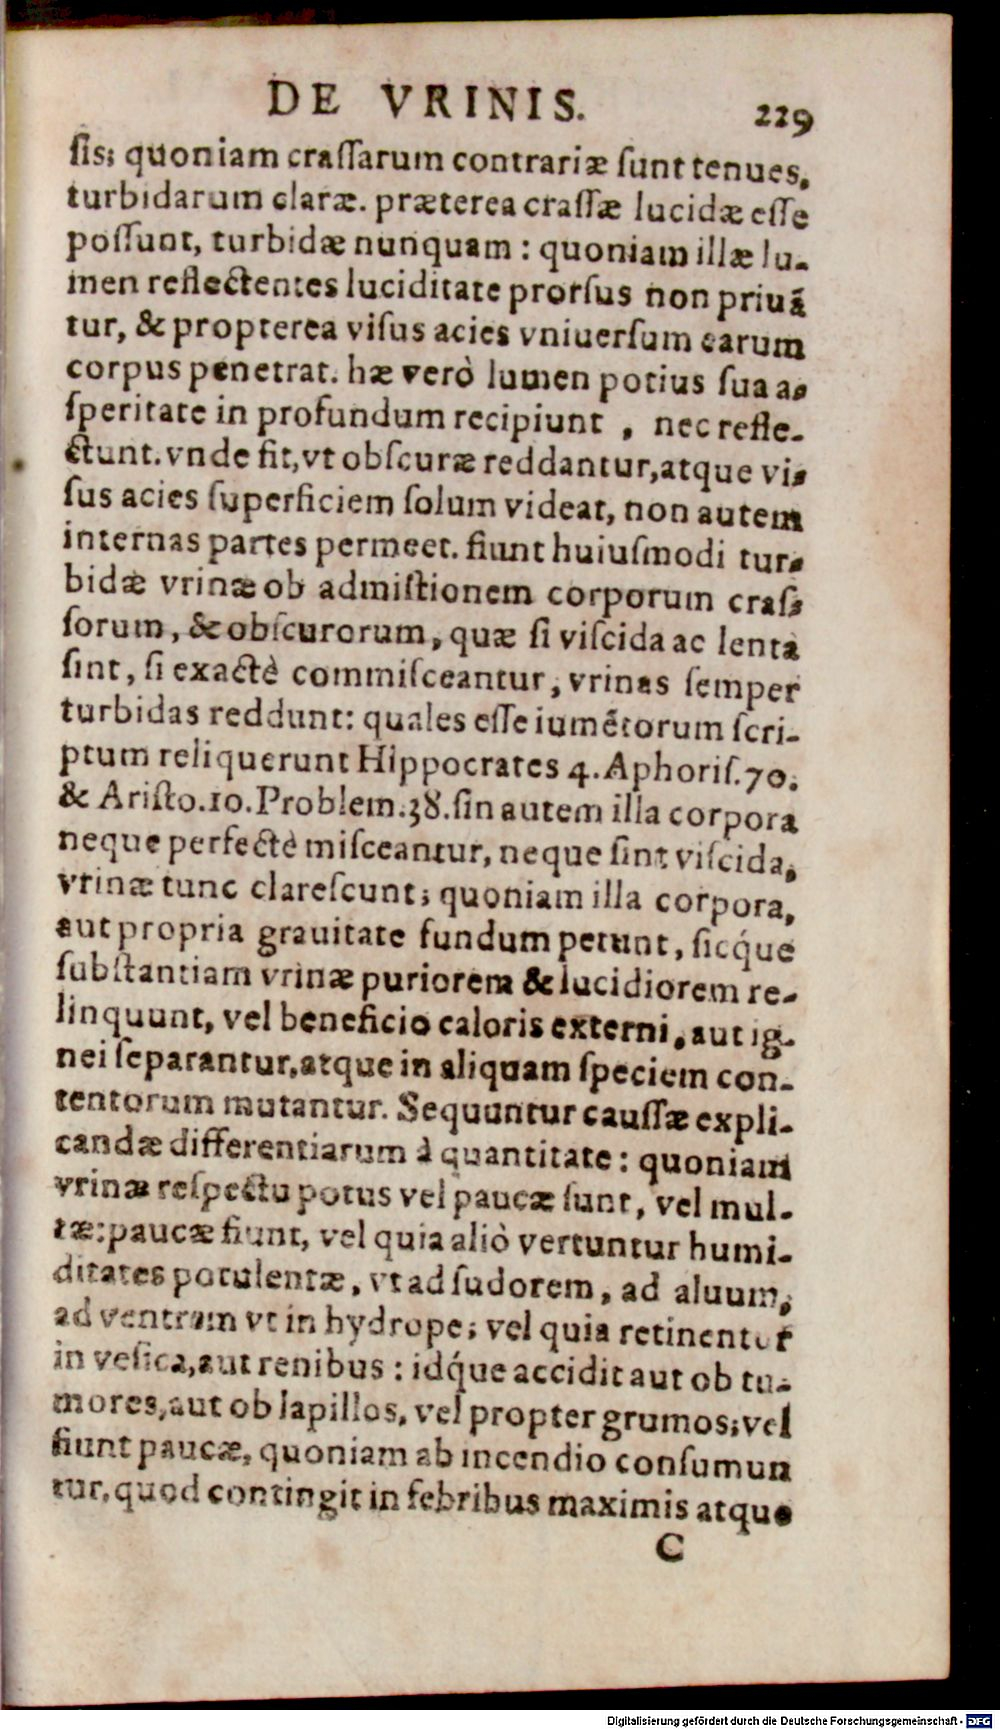 DE VRINIS. 229
ſis; quoniam craſſarum contrariæ ſunt tenues,
turbidarum claræ. præterea craſſæ lucidæ eſſe
poſſunt, turbidæ nunquam: quoniam illæ lu-
men reflectentes luciditate prorſus non priuā
tur, & propterea viſus acies vniuerſum earum
corpus penetrat. hæ verò lumen potius ſua a-
ſperitate in profundum recipiunt , nec refle-
ctunt. vnde fit, vt obſcuræ reddantur, atque vi-
ſus acies ſuperficiem ſolum videat, non autem
internas partes permeet. fiunt huiuſmodi tur-
bidæ vrinæ ob admiſtionem corporum craſ-
ſorum, & obſcurorum, quæ ſi viſcida ac lenta
ſint, ſi exactè commiſceantur, vrinas ſemper
turbidas reddunt: quales eſſe iumētorum ſcri-
ptum reliquerunt Hippocrates 4. Aphoriſ. 70.
& Ariſto. 10. Problem. 38. ſin autem illa corpora
neque perfectè miſceantur, neque ſint viſcida,
vrinæ tunc clareſcunt; quoniam illa corpora,
aut propria grauitate fundum petunt, ſicq́ue
ſubſtantiam vrinæ puriorem & lucidiorem re-
linquunt, vel beneficio caloris externi, aut ig-
nei ſeparantur, atque in aliquam ſpeciem con-
tentorum mutantur. Sequuntur cauſſæ expli-
candæ differentiarum à quantitate: quoniam
vrinæ reſpectu potus vel paucæ ſunt, vel mul-
tæ: paucæ fiunt, vel quia aliò vertuntur humi-
ditates potulentæ, vt ad ſudorem, ad aluum,
ad ventrem vt in hydrope; vel quia retinentur
in veſica, aut renibus: idq́ue accidit aut ob tu-
mores, aut ob lapillos, vel propter grumos; vel
fiunt paucæ, quoniam ab incendio conſumun
tur, quod contingit in febribus maximis atque
C
Digitalisierung gefördert durch die Deutsche Forschungsgemeinschaft - DFG